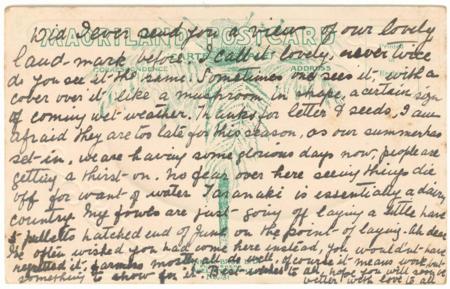 Did I ever send you a view of our lovely
MAORILAND POSTCARD
land mark before. I call it lovely, never twice
do you see it the same. Sometimes one sees it with a
CORRESPONDENCE
ADDRESS
cover over it like a mushroom in shape, a certain sign
of coming wet weather. Thanks for letter & seeds, I am
afraid they are too late for this season, as our summer has
set-in, we are having some glorious days now, people are
getting a thirst-on. No fear over here seeing things die
off for want of water Taranaki is essentially a dairy
country. My fowls are just going off laying a little have
5 pulletts hatched end of June on the point of laying. Ah dear
Ive often wished you had come here instead, you would nt have
regretted it, farmers mostly all do well, of course it means work but
something to show for it Best wishes to all, hope you will soon be
better with love to all